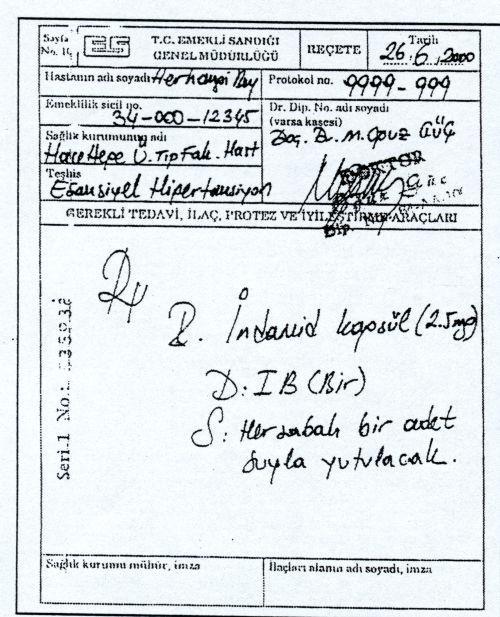 Sayfa
No. 1
T.C. EMEKLİ SANDIĞI
GENEL MÜDÜRLÜĞÜ
REÇETE
Tarih
26.6.2000
Hastanın adı soyadı Herhangi Bey
Protokol no. 9999-999
Emeklilik sicil no.
34-000-12345
Sağlık kurumunun adı
Hacettepe Ü. Tıp Fak. Hast
Dr. Dip. No. adı soyadı
(varsa kaşesi)
Doç. Dr. M. Oğuz GÜÇ
DOKTOR
Teşhis
Esansiyel Hipertansiyon
GEREKLİ TEDAVİ, İLAÇ, PROTEZ VE İYİLEŞTİRME ARAÇLARI
Seri.1 No.:
R. İndamid kapsül (2.5mg)
D: I B (Bir)
S: Her sabah bir adet
suyla yutulacak.
Sağlık kurumu mühür, imza
İlaçları alanın adı soyadı, imza